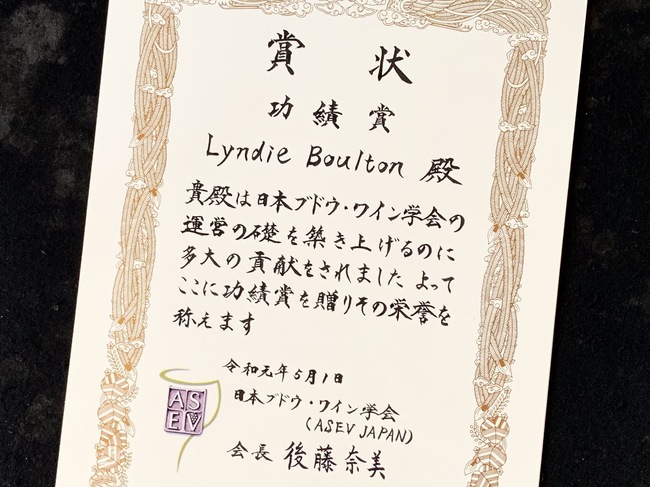 賞状
功績賞
Lyndie Boulton 殿
貴殿は日本ブドウ・ワイン学会の
運営の礎を築き上げるのに
多大の貢献をされました よって
ここに功績賞を贈りその栄誉を
称えます
令和元年5月1日
日本ブドウ・ワイン学会
(ASEV JAPAN)
会長 後藤奈美
AS
EV